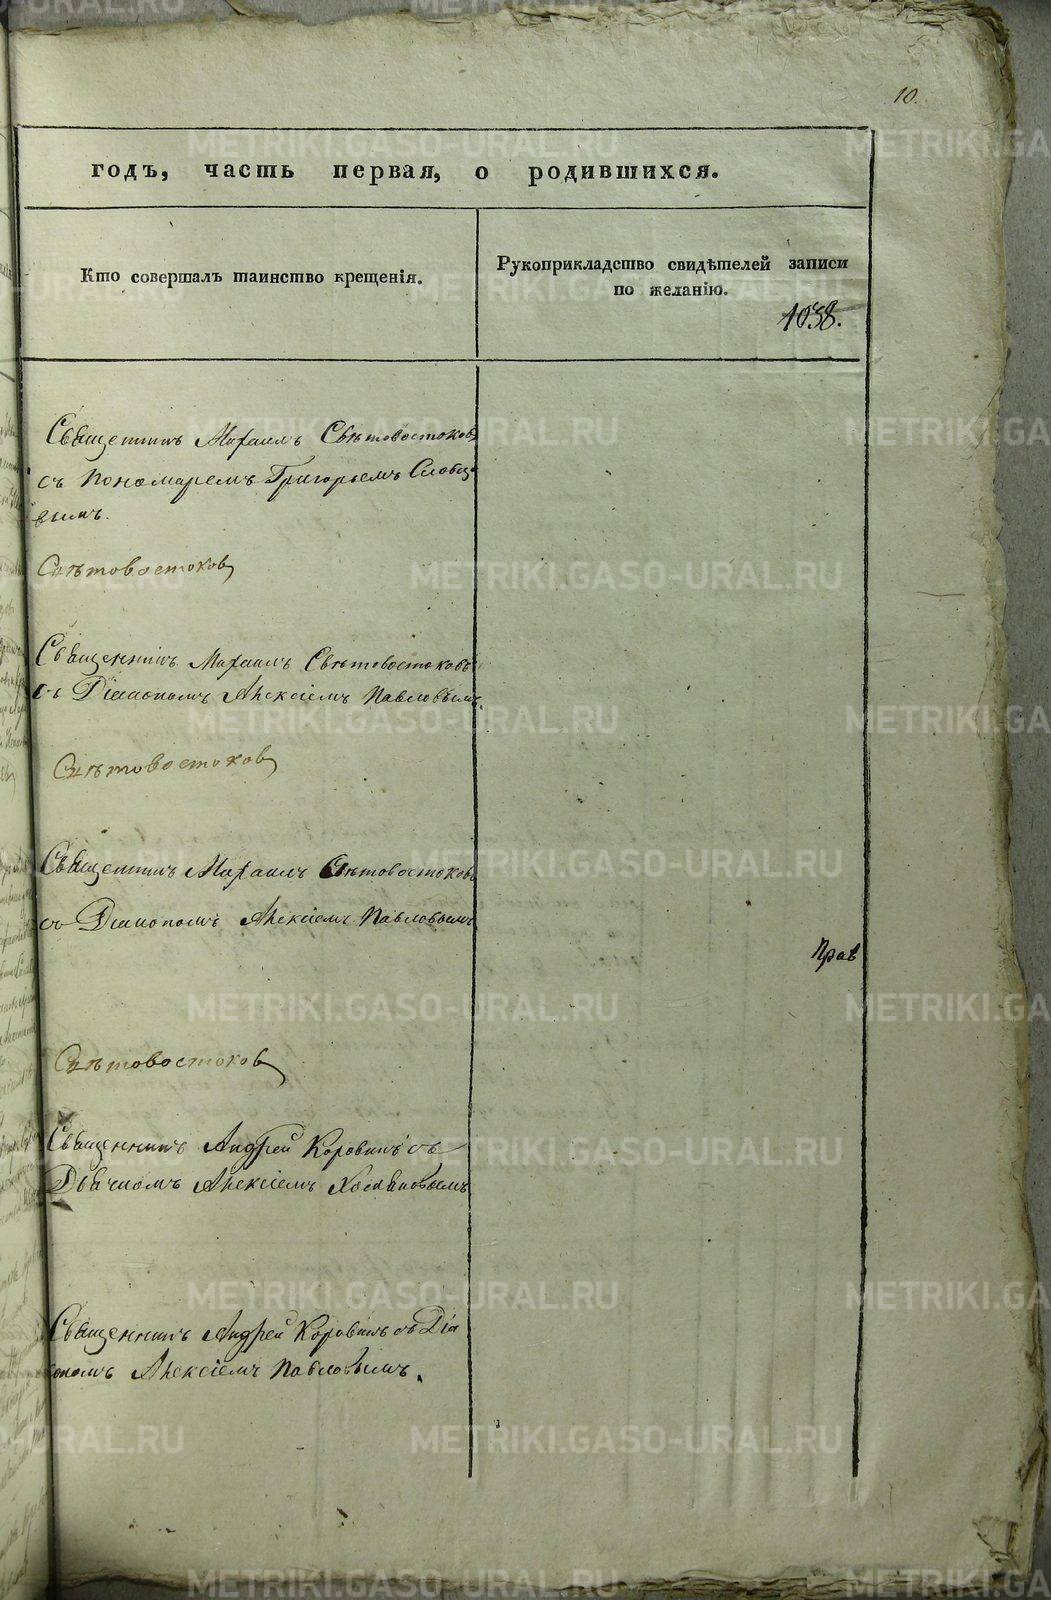 10.
годъ, часть первая, о родившихся.
Кто совершалъ таинство крещенія.
Рукоприкладство свидѣтелей записи
по желанію.
1038.
Священникъ Михаилъ Свѣтовостоковъ
съ Пономаремъ Григорьемъ Слобцо-
вымъ.
Свѣтовостоковъ
Священникъ Михаилъ Свѣтовостоковъ
съ Діакономъ Алексіемъ Павловымъ.
Свѣтовостоковъ
Священникъ Михаилъ Свѣтовостоковъ
съ Діакономъ Алексіемъ Павловымъ
Прав
Свѣтовостоковъ
Священникъ Андрей Коровинъ съ
Дьячкомъ Алексіемъ
Священникъ Андрей Коровинъ съ Діа
кономъ Алексіемъ Павловымъ.
METRIKI.GASO-URAL.RU